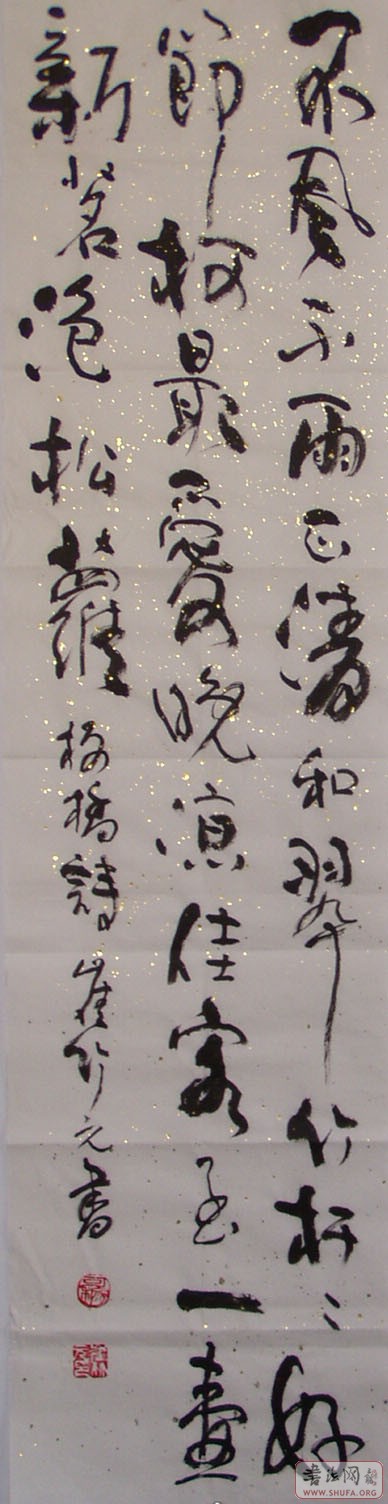 不風不雨正清和翠竹杆々好
節柯最愛晚涼佳客至一壺
新茗泡松蘿 板橋詩 崔元書
書法网
WWW.SHUFA.ORG